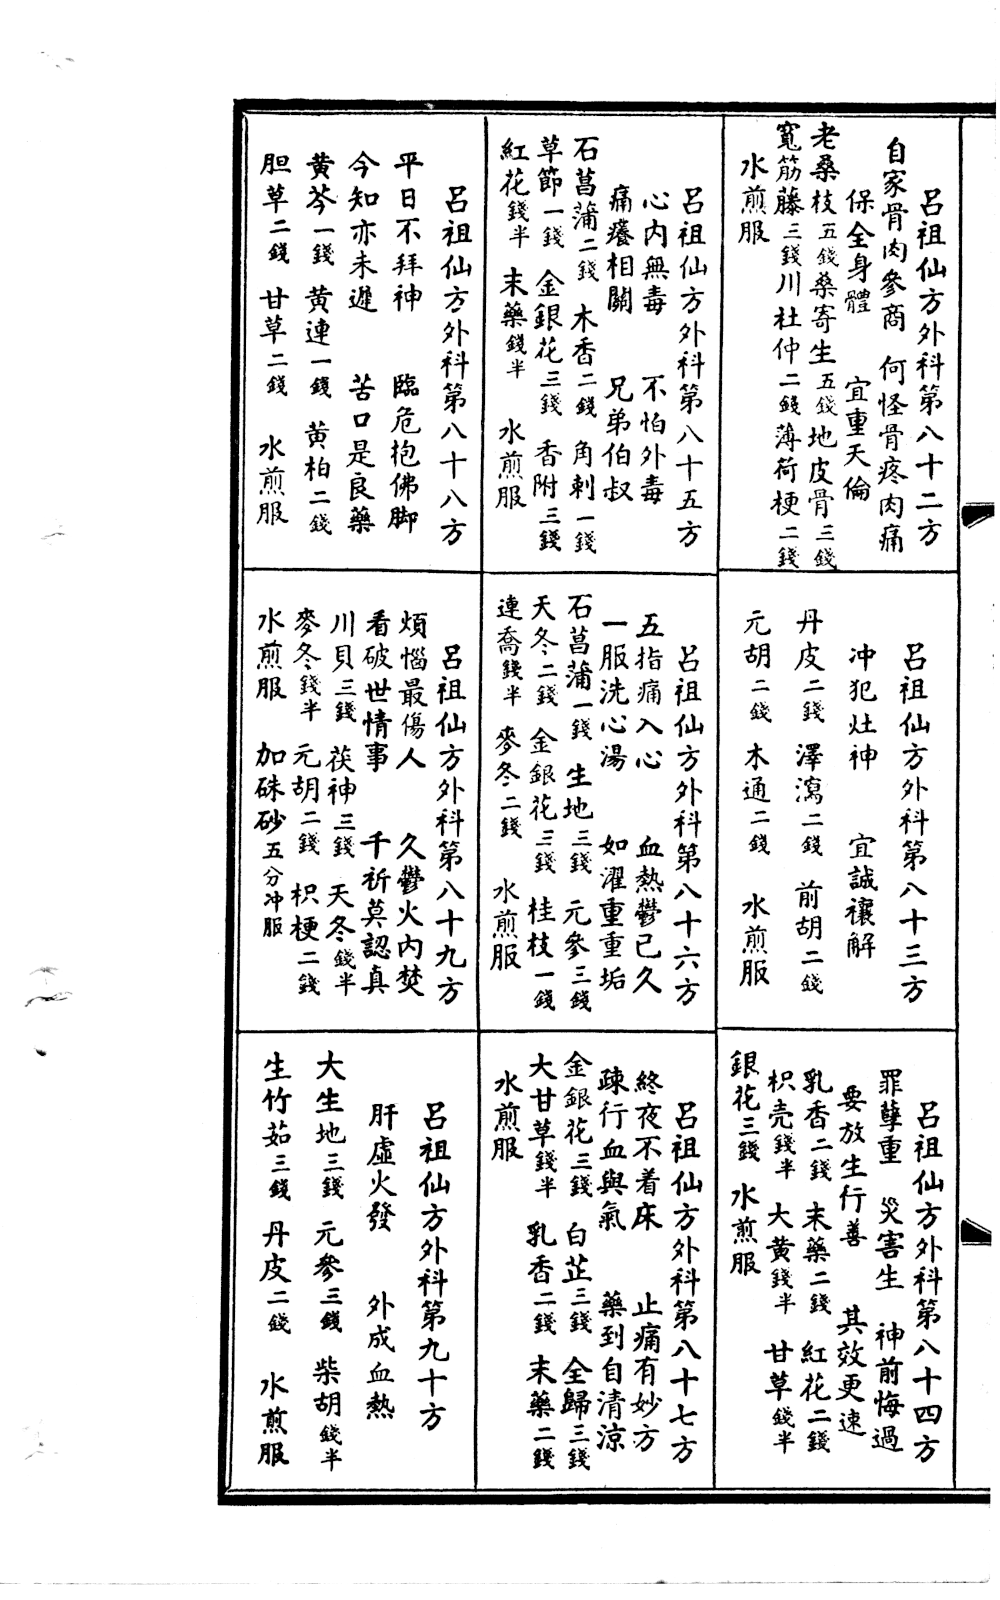 呂祖仙方外科第八十二方
自家骨肉參商　何怪骨疼肉痛
保全身體　宜重天倫
老桑枝五錢桑寄生五錢地皮骨三錢
寬筋藤三錢川杜仲二錢薄荷梗二錢
水煎服
呂祖仙方外科第八十三方
冲犯灶神　宜誠禳解
丹皮二錢　澤瀉二錢　前胡二錢
元胡二錢　木通二錢　水煎服
呂祖仙方外科第八十四方
罪孽重　災害生　神前悔過
要放生行善　其效更速
乳香二錢　末藥二錢　紅花二錢
枳壳錢半　大黃錢半　甘草錢半
銀花三錢　水煎服
呂祖仙方外科第八十五方
心內無毒　不怕外毒
痛癢相關　兄弟伯叔
石菖蒲二錢　木香二錢　角刺一錢
草節一錢　金銀花三錢　香附三錢
紅花錢半　末藥錢半　水煎服
呂祖仙方外科第八十六方
五指痛入心　血熱鬱已久
一服洗心湯　如濯重重垢
石菖蒲一錢　生地三錢　元參三錢
天冬二錢　金銀花三錢　桂枝一錢
連喬錢半　麥冬二錢　水煎服
呂祖仙方外科第八十七方
終夜不着床　止痛有妙方
疎行血與氣　藥到自清涼
金銀花三錢　白芷三錢　全歸三錢
大甘草錢半　乳香二錢　末藥二錢
水煎服
呂祖仙方外科第八十八方
平日不拜神　臨危抱佛脚
今知亦未遲　苦口是良藥
黃芩一錢　黃連一錢　黃柏二錢
胆草二錢　甘草二錢　水煎服
呂祖仙方外科第八十九方
煩惱最傷人　久鬱火內焚
看破世情事　千祈莫認真
川貝三錢　茯神三錢　天冬錢半
麥冬錢半　元胡二錢　枳梗二錢
水煎服　加硃砂五分冲服
呂祖仙方外科第九十方
肝虛火發　外成血熱
大生地三錢　元參三錢　柴胡錢半
生竹茹三錢　丹皮二錢　水煎服